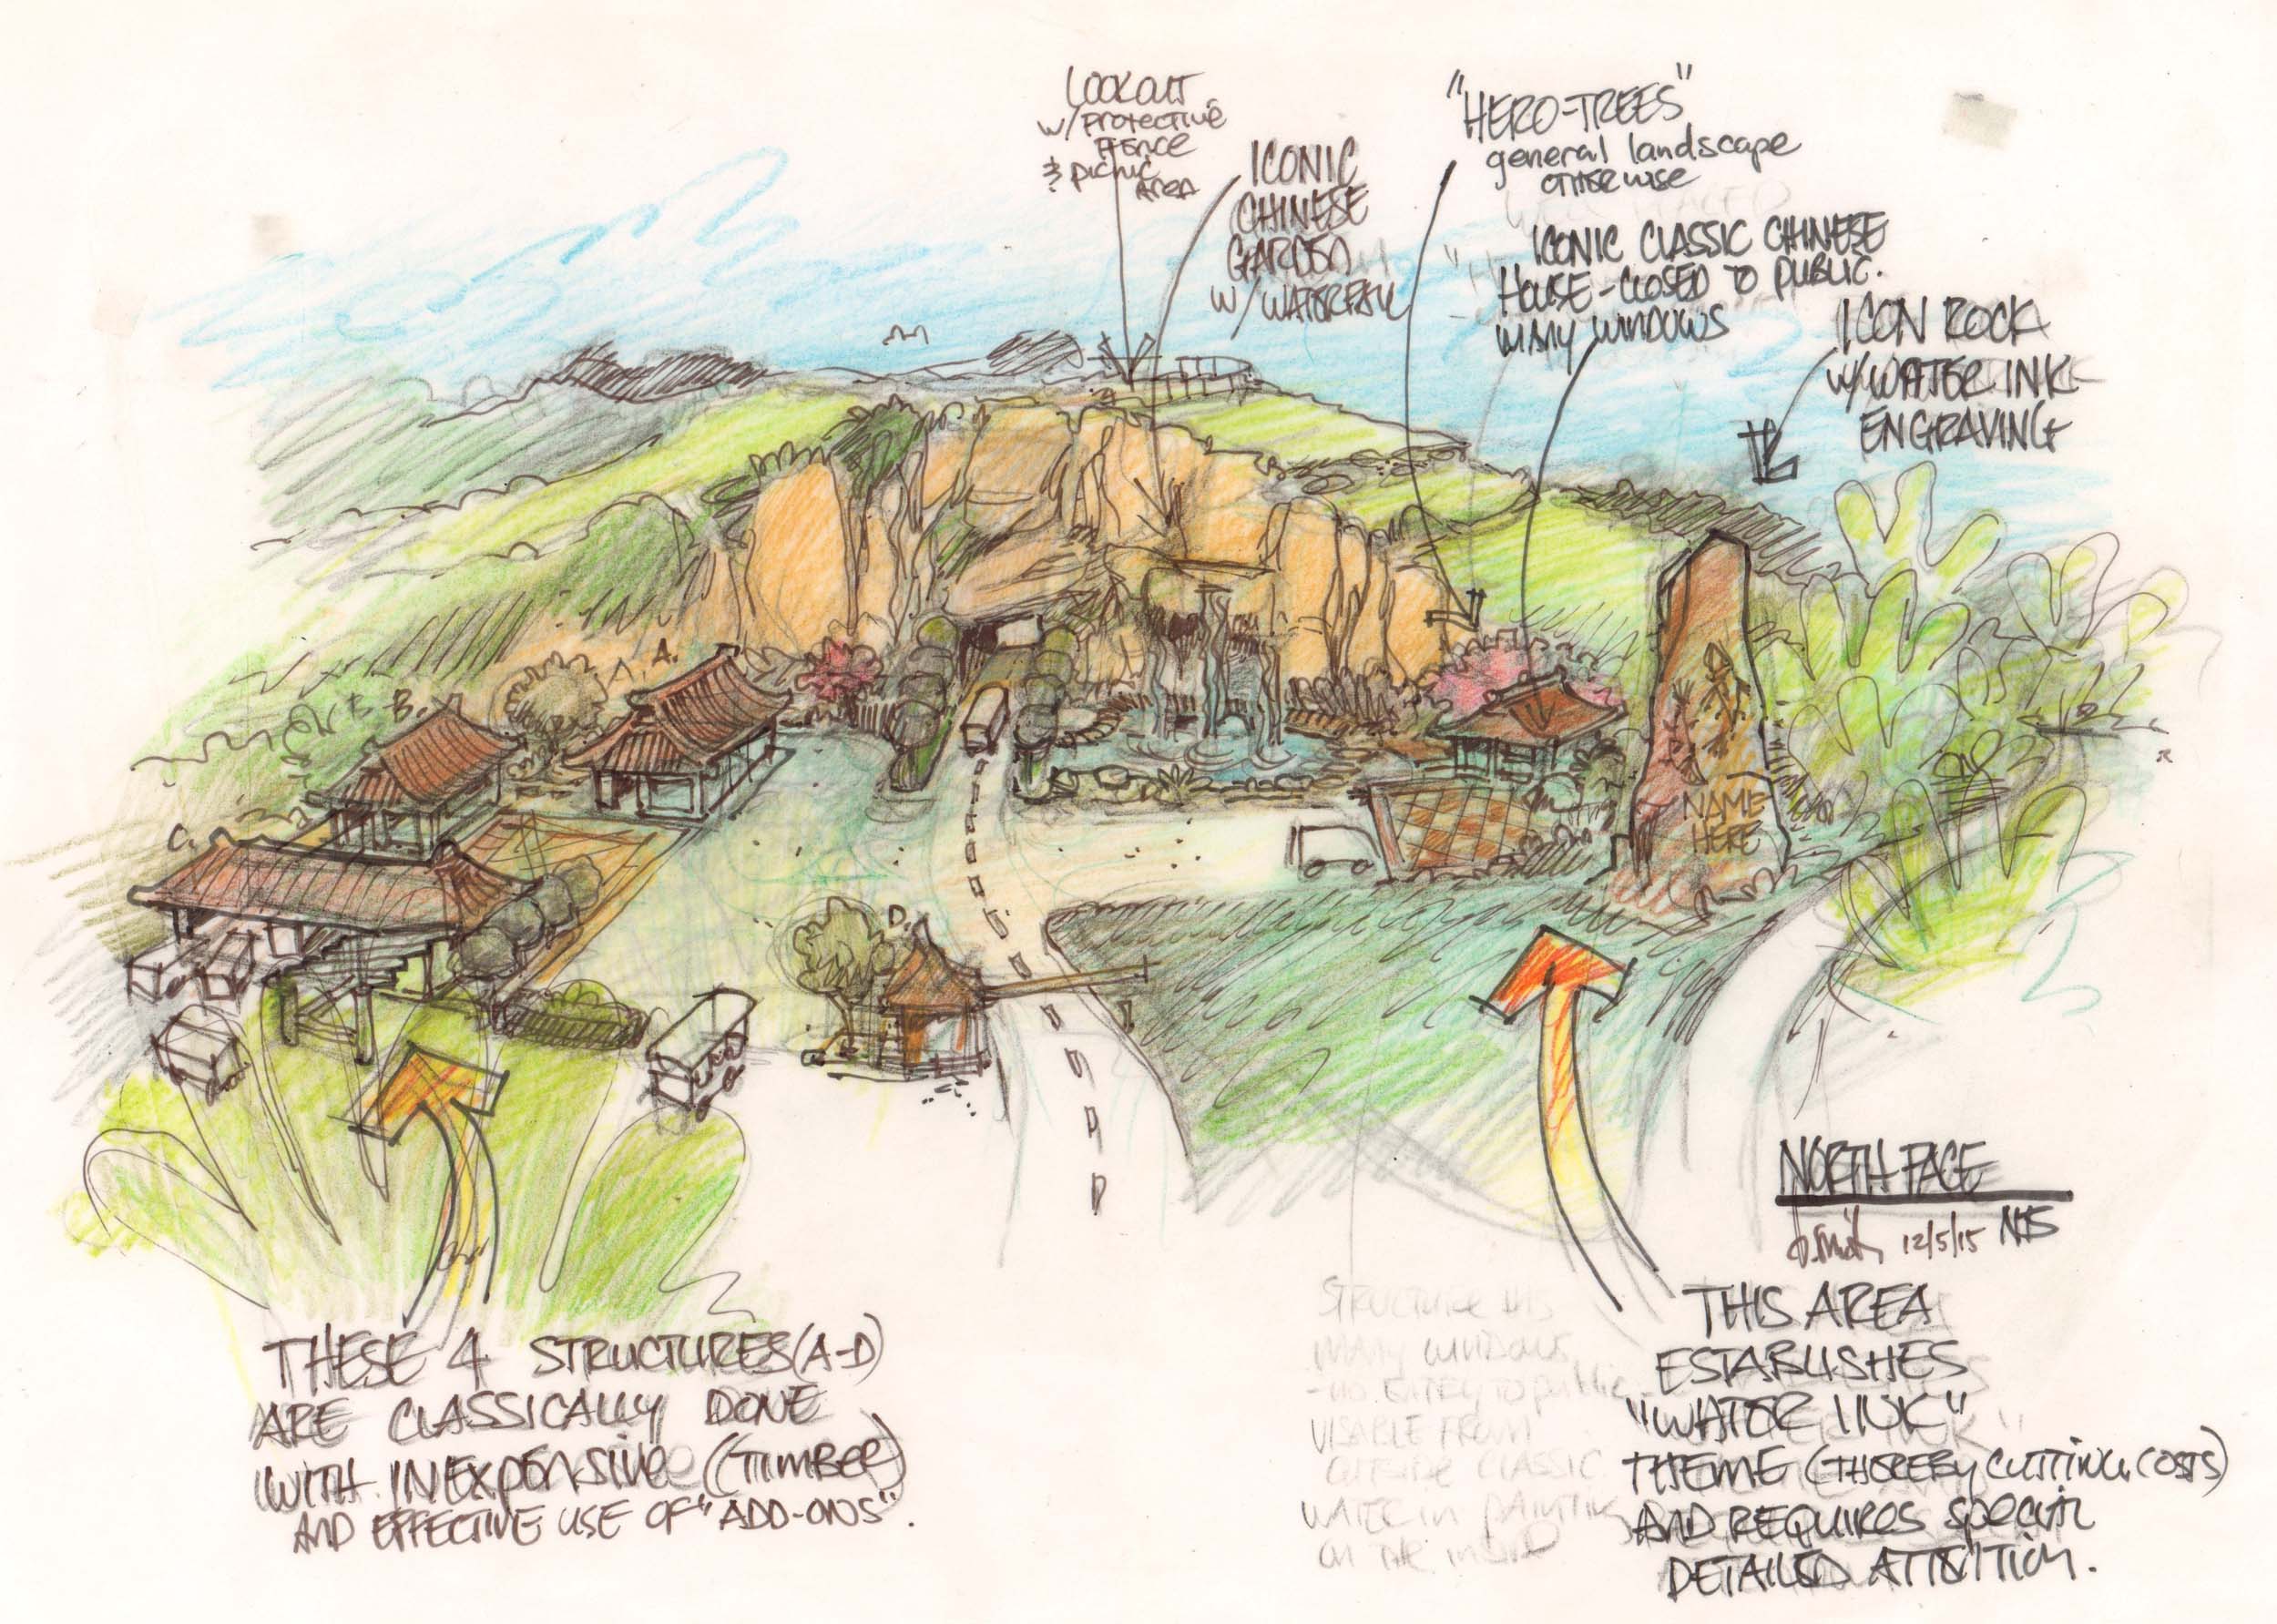 LOOKOUT
w/PROTECTIVE
FENCE
& PICNIC
AREA
ICONIC
CHINESE
GARDEN
W/WATERFALL
"HERO-TREES"
general landscape
OTHERWISE
ICONIC CLASSIC CHINESE
HOUSE-CLOSED TO PUBLIC.
MANY WINDOWS
ICON ROCK
W/WATER INK
ENGRAVING
A. A.
B B.
C.
D.
NAME
HERE
NORTH FACE
12/5/15 NTS
THESE 4 STRUCTURES (A-D)
ARE CLASSICALLY DONE
WITH INEXPENSIVE (TIMBER)
AND EFFECTIVE USE OF "ADD-ONS".
THIS AREA
ESTABLISHES
"WATER INK"
THEME (THEREBY CUTTING COSTS)
AND REQUIRES SPECIAL
DETAILED ATTENTION.
STRUCTURE HAS
MANY WINDOWS
-NO ENTRY TO public
VISABLE FROM
OUTSIDE CLASSIC
WATER in PAINTING
ON THE